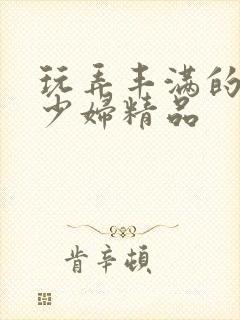 玩弄丰满的
少婦精品
肯辛頓